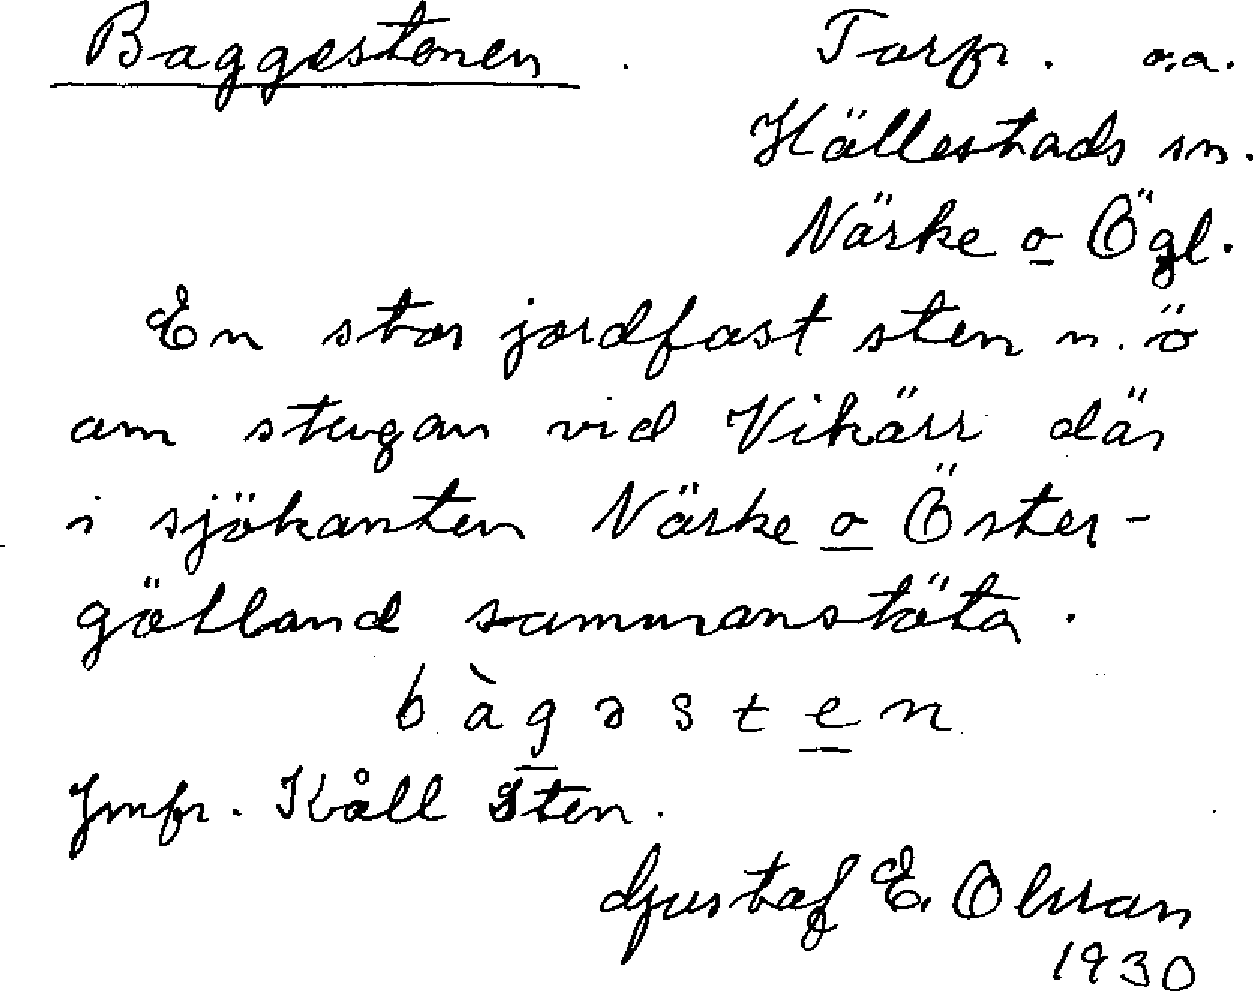 Baggestenen. Torfr. o.a.
Hällestads sn.
Närke o Ögl.
En stor jordfast sten n.ö
om stugan vid Vikärr där
i sjökanten Närke o Öster-
götland sammanstöta.
bàgəsten
Jmfr. Kåll Sten.
Gustaf E. Olsson
1930